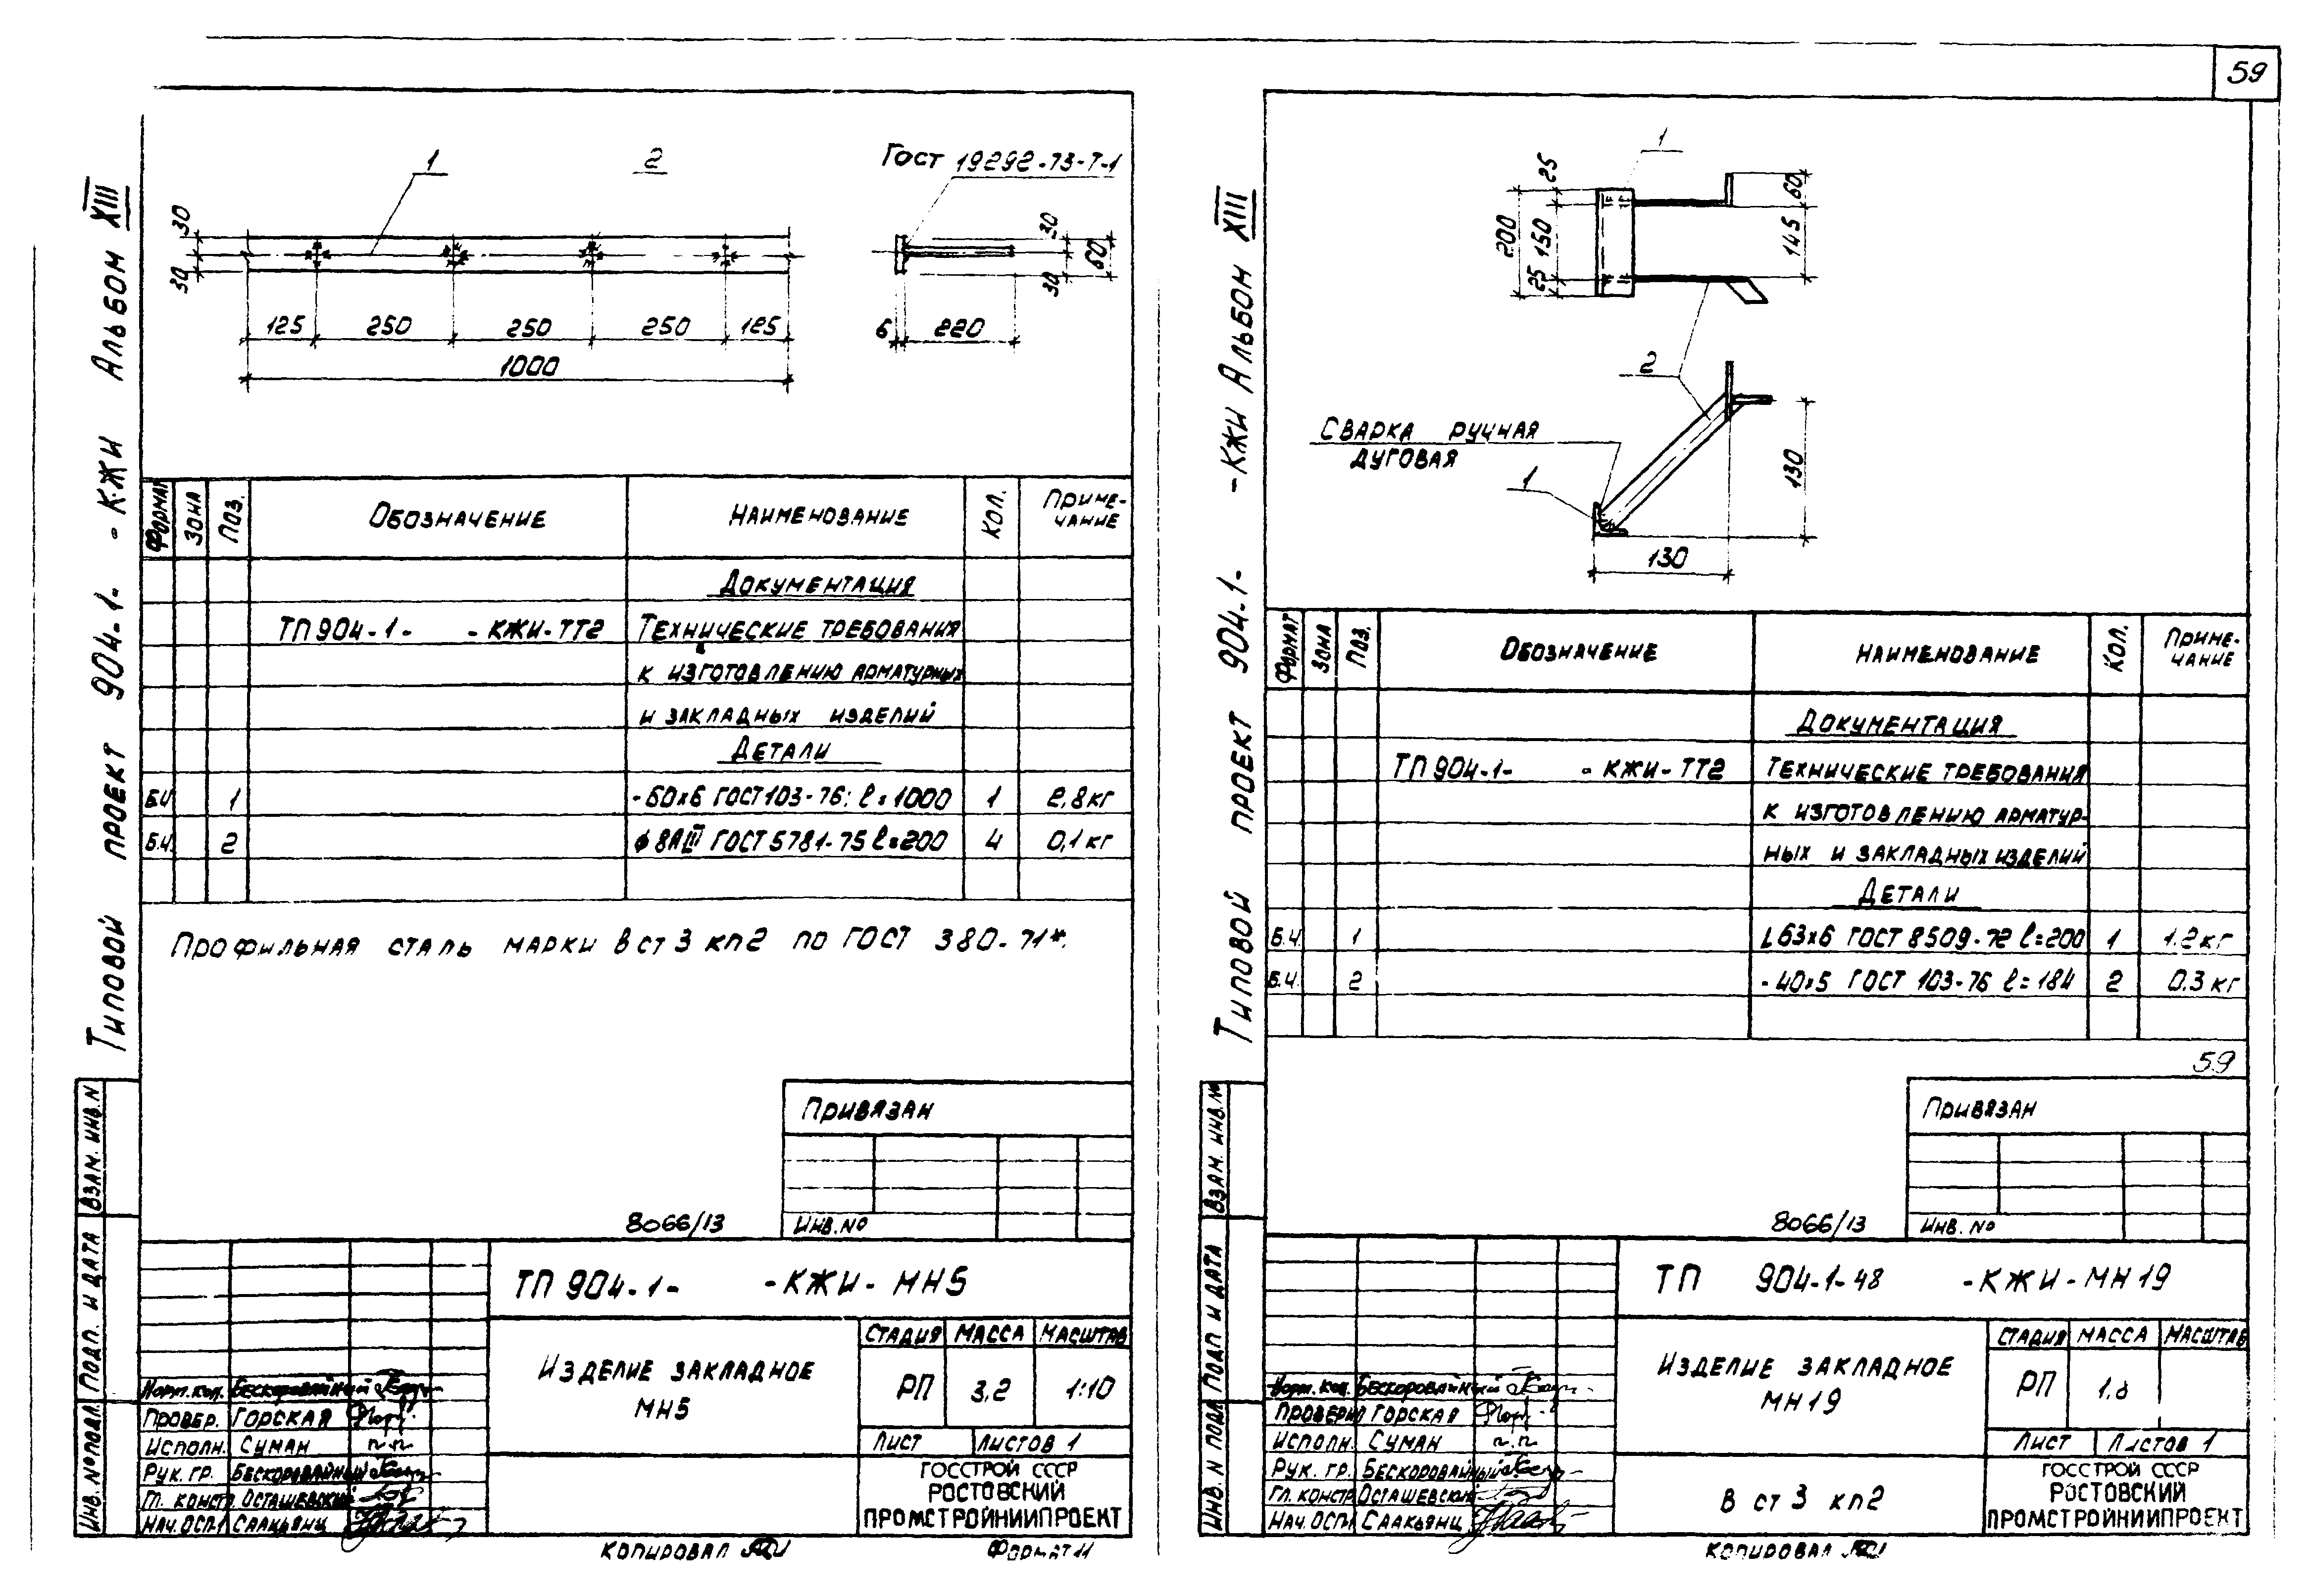 59
Типовой проект 904-1- -КЖИ Альбом XIII
1
2
ГОСТ 19292-73-Т-1
30
30
125
250
250
250
125
1000
30
60
30
6
220
Формат
Зона
Поз.
Обозначение
Наименование
Кол.
Приме-
чание
Документация
ТП 904-1- -КЖИ-ТТ2 Технические требования
к изготовлению арматурных
и закладных изделий
Детали
Б.И 1 -60х6 ГОСТ 103-76; ℓ=1000 1 2,8 кг
Б.Ч. 2 ф8АIII ГОСТ 5781-75 ℓ=200 4 0,1 кг
Профильная сталь марки Вст3кп2 по ГОСТ 380-71*.
Привязан
8066/13
Инв.№
ТП 904-1- -КЖИ-МН5
Изделие закладное
МН5
Стадия Масса Масштаб
РП 3,2 1:10
Лист Листов 1
Госстрой СССР
Ростовский
Промстройниипроект
Норм.кон. Бескоровайный
Провер. Горская
Исполн. Суман п.п
Рук. гр. Бескоровайный
Гл. констр. Осташевский
Нач. ОСП-1 Саакьянц
Взам. инв. N
Подп. и дата
Инв. № подл.
Копировал
Формат 11
Типовой проект 904-1- -КЖИ Альбом XIII
1
25
200
150
25
60
145
2
Сварка ручная
дуговая
1
130
130
Формат
Зона
Поз.
Обозначение
Наименование
Кол.
Приме-
чание
Документация
ТП 904-1- -КЖИ-ТТ2 Технические требования
к изготовлению арматур-
ных и закладных изделий
Детали
Б.Ч. 1 L63х6 ГОСТ 8509-72 ℓ=200 1 1.2 кг
Б.Ч. 2 -40х5 ГОСТ 103-76 ℓ=184 2 0.3 кг
59
Привязан
8066/13
Инв. №
ТП 904-1-48 -КЖИ-МН19
Изделие закладное
МН19
Стадия Масса Масштаб
РП 1,8
Лист Листов 1
В ст 3 кп2
Госстрой СССР
Ростовский
Промстройниипроект
Норм. кон. Бескоровайный
Проверил Горская
Исполн. Суман п.п
Рук. гр. Бескоровайный
Гл. констр Осташевский
Нач. ОСП-1 Саакьянц
Взам. инв. №
Подп и дата
Инв. N подл
Копировал